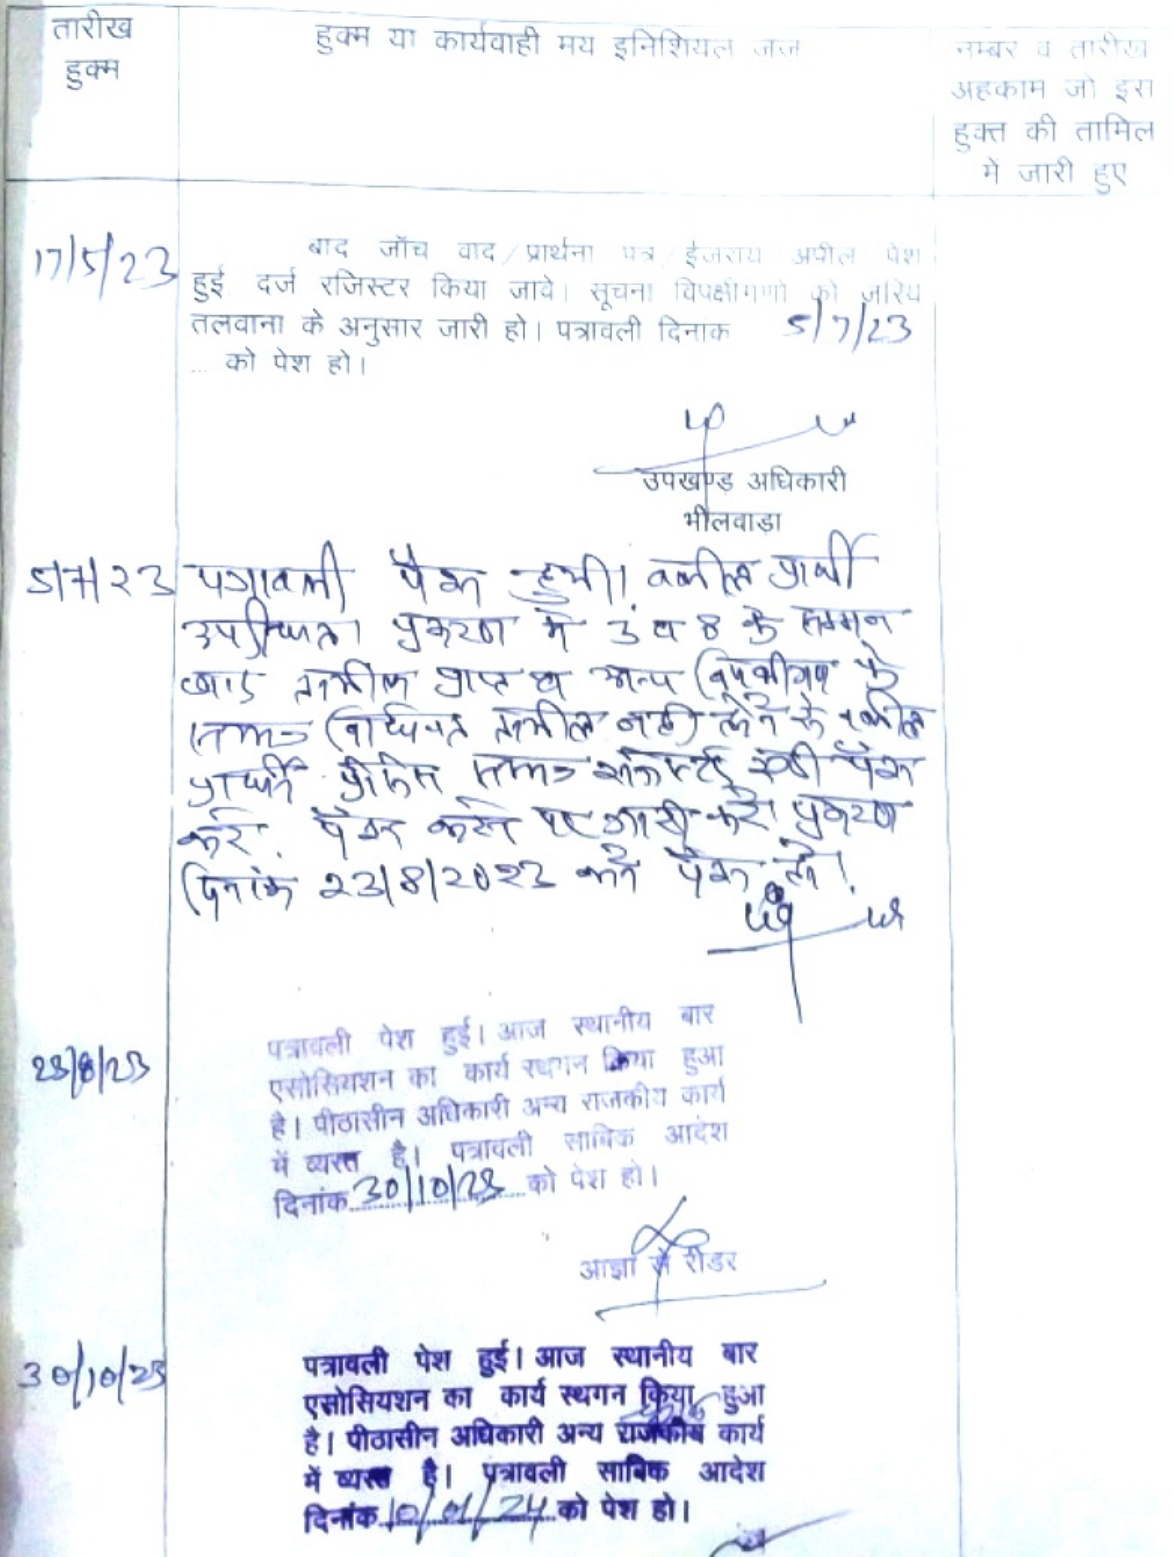 तारीख
हुक्म
हुक्म या कार्यवाही मय इनिशियल जज
नम्बर व तारीख
अहकाम जो इस
हुक्त की तामिल
मे जारी हुए
17/5/23
बाद जॉच वाद/प्रार्थना पत्र/ईजराय अपील पेश
हुई दर्ज रजिस्टर किया जावे। सूचना विपक्षीगणो को जरिये
तलवाना के अनुसार जारी हो। पत्रावली दिनाक 5/7/23
... को पेश हो।
उपखण्ड अधिकारी
भीलवाडा
5/7/23 पत्रावली पेश हुयी। वकील प्रार्थी
उपस्थित। प्रकरण में 3 व 8 के सम्मन
बाद तामील प्राप्त व अन्य विपक्षीगण के
सम्मन विधिवत तामील नही होने से वकील
प्रार्थी सम्मन रजिस्टर्ड पेश
करे. पेश करने पर जारी करे। प्रकरण
दिनांक 23/8/2023 को पेश हो।
23/8/23
पत्रावली पेश हुई। आज स्थानीय बार
एसोसियशन का कार्य स्थगन किया हुआ
है। पीठासीन अधिकारी अन्य राजकीय कार्य
में व्यस्त है। पत्रावली साबिक आदेश
दिनांक 30/10/23 को पेश हो।
आज्ञा से रीडर
30/10/23
पत्रावली पेश हुई। आज स्थानीय बार
एसोसियशन का कार्य स्थगन किया हुआ
है। पीठासीन अधिकारी अन्य राजकीय कार्य
में व्यस्त है। पत्रावली साबिक आदेश
दिनांक 10/01/24 को पेश हो।